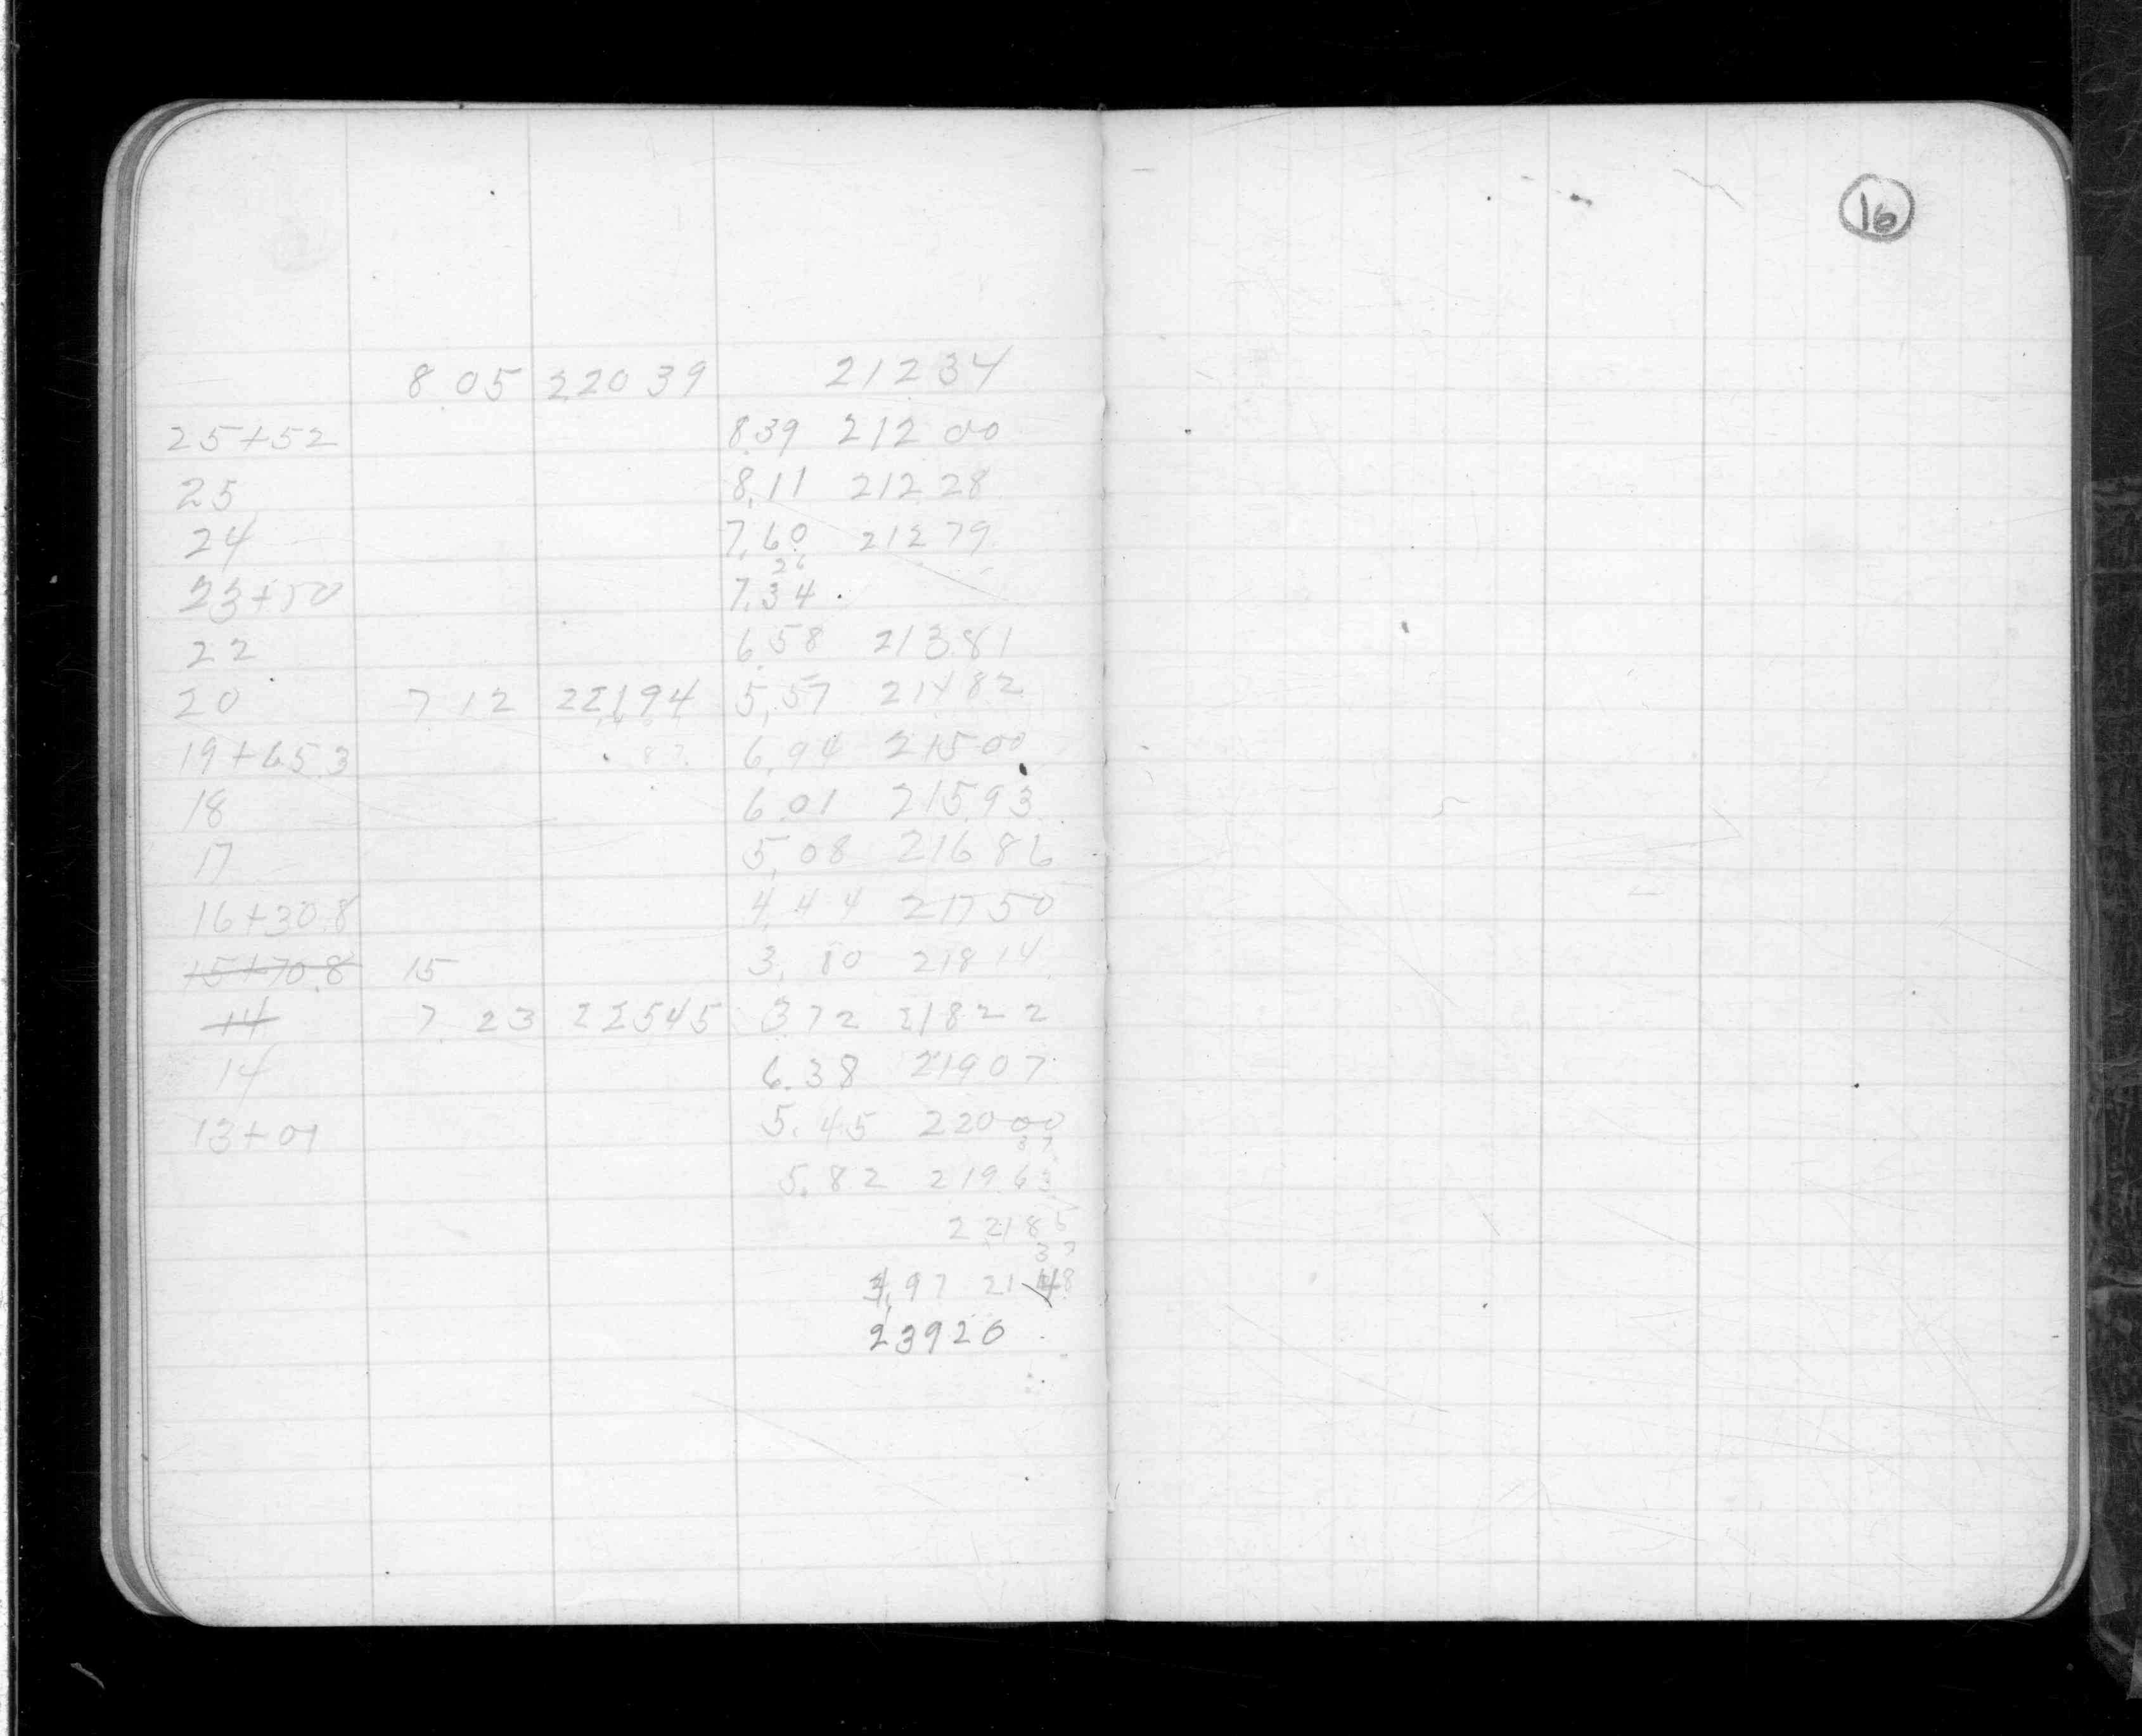 16
8 05 220 39 212 34
25+52 8.39 212 00
25 8.11 212 28
24 7.60 212 79
26
23+50 7.34
22 6.58 213.81
20 7 12 221 94 5.57 214 82
19+65.3 87 6.94 215 00
18 6.01 215.93
17 5.08 216 86
16+30.8 4.44 217 50
15+70.8 15 3.80 218 14
14 7 23 225 45 3.72 218 22
14 6.38 219 07
13+01 5.45 220 00
37
5.82 219 63
221 85
37
4.97 21 48
23920